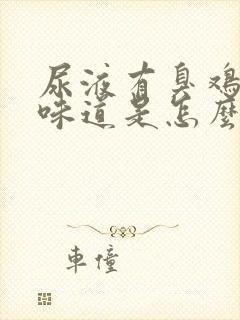 尿液有臭鸡
味道是怎麼
車憧